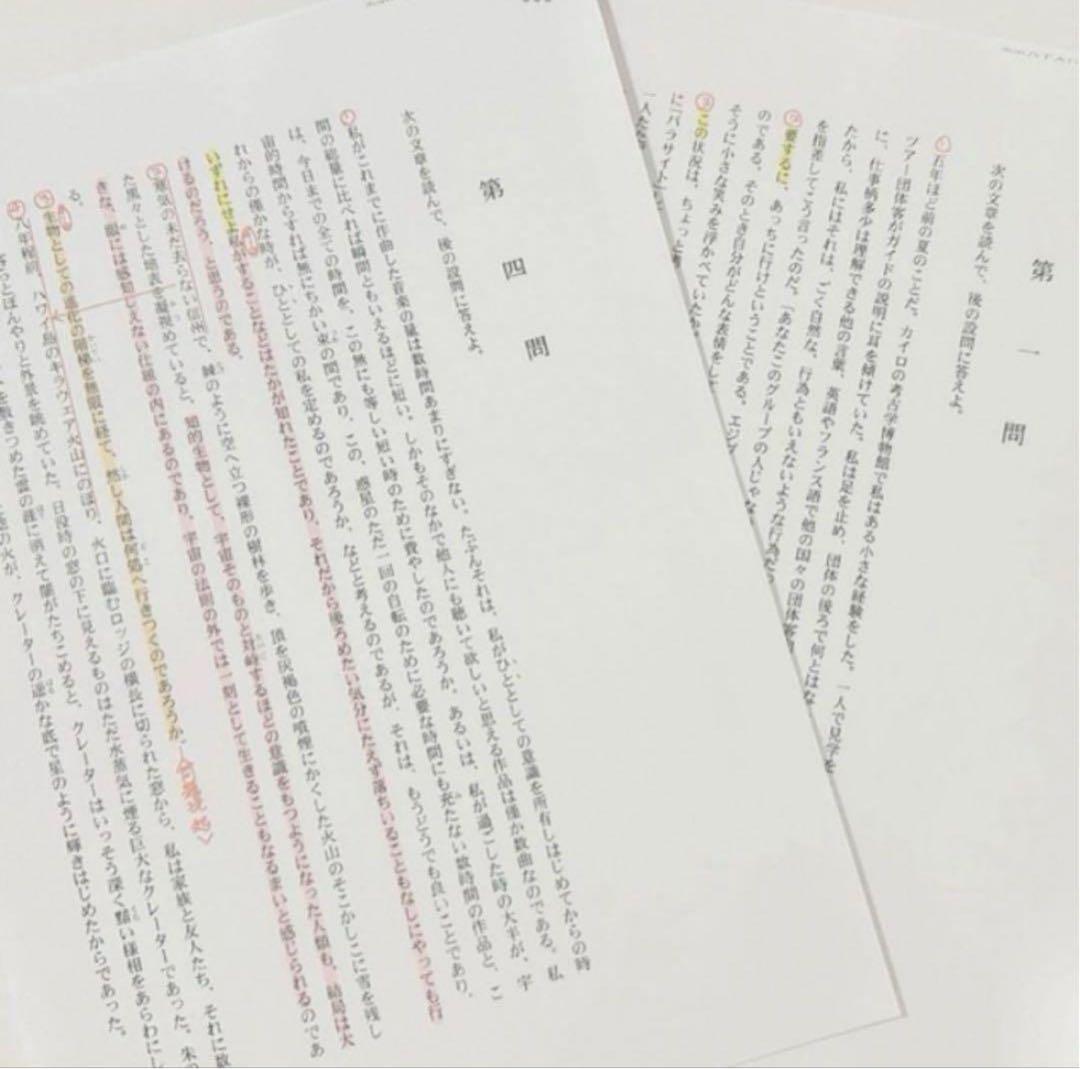 第一問
次の文章を読んで、後の設問に答えよ。
五年ほど前の夏のことだ。カイロの考古学博物館で私はある小さな経験をした。一人で見学を
ツアー団体客がガイドの説明に耳を傾けていた。私は足を止め、団体の後ろで何とはな
に、仕事柄多少は理解できる他の言葉、英語やフランス語で他の国々の団体客
たから、私にはそれは、ごく自然な、行為ともいえないような行為だっ
を指差してこう言ったのだ。「あなたこのグループの人じゃな
要するに、あっちに行けということである。エジプ
のである。そのとき自分がどんな表情をし
そうに小さな笑みを浮かべていたかも
この状況は、ちょっと
に「パラサイト」
一人だから
第四問
次の文章を読んで、後の設問に答えよ。
私がこれまでに作曲した音楽の量は数時間あまりにすぎない。たぶんそれは、私がひととしての意識を所有しはじめてからの時
間の総量に比べれば瞬間ともいえるほどに短い。しかもそのなかで他人にも聴いて欲しいと思える作品は僅か数曲なのである。私
は、今日までの全ての時間を、この無にも等しい短い時のために費やしたのであろうか。あるいは、私が過ごした時の大半が、宇
宙的時間からすれば無にちかい束の間であり、この、惑星のただ一回の自転のために必要な時間にも充たない数時間の作品と、こ
れからの僅かな時が、ひととしての私を定めるのであろうか、などと考えるのであるが、それは、もうどうでも良いことであり、
いずれにせよ私がすることなどはたかが知れたことであり、それだから後ろめたい気分にたえず落ちいることもなしにやっても行
けるのだろう、と思うのである。
寒気の未だ去らない信州で、棘のように空へ立つ裸形の樹林を歩き、頂を灰褐色の噴煙にかくした火山のそこかしこに雪を残し
た黒々とした地表を凝視めていると、知的生物として、宇宙そのものと対峙するほどの意識をもつようになった人類も、結局は大
きな、眼には感知しえない仕組の内にあるのであり、宇宙の法則の外では一刻として生きることもなるまいと感じられるのであ
る。
生物としての進化の階梯を無限に経て、然し人間は何処へ行きつくのであろうか。
八年程前、ハワイ島のキラウェア火山にのぼり、火口に臨むロッジの横長に切られた窓から、私は家族と友人たち、それに数
らとぼんやりと外景を眺めていた。日没時の窓の下に見えるものはただ水蒸気に煙る巨大なクレーターであった。朱の
を敷きつめた雲の涯に消えて闇がたちこめると、クレーターはいっそう深く黯い様相をあらわにし
の火が、クレーターの遥かな底で星のように輝きはじめたからであった。